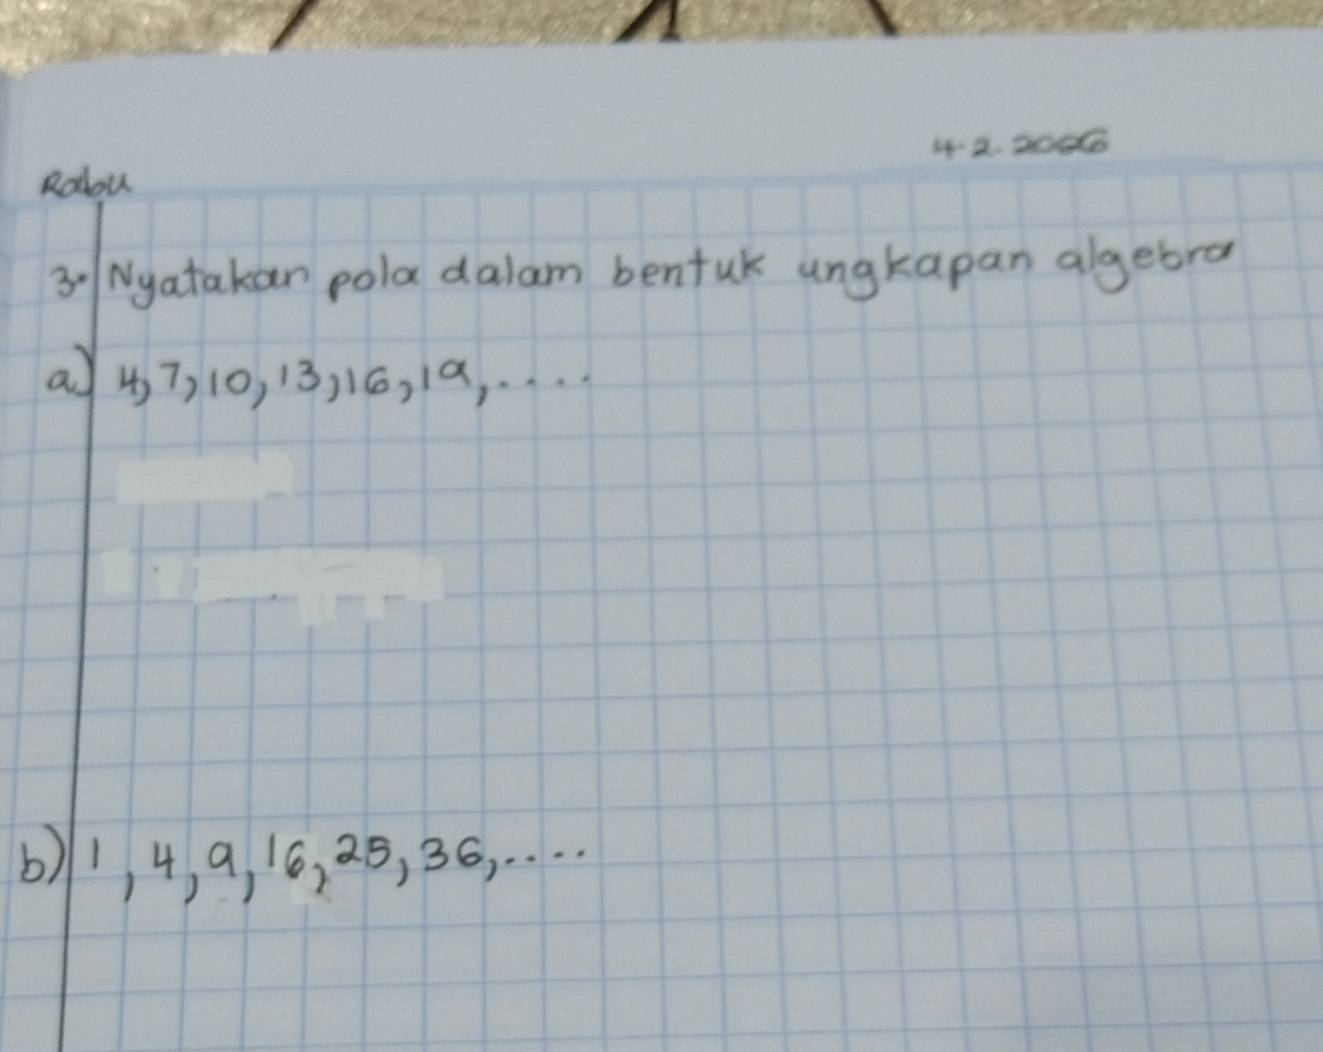 4.2.2026
Rabu
3. Nyatakan pola dalam bentuk ungkapan algebra
a) 4, 7, 10, 13, 16, 19, ....
b) 1, 4, 9, 16, 25, 36, ....